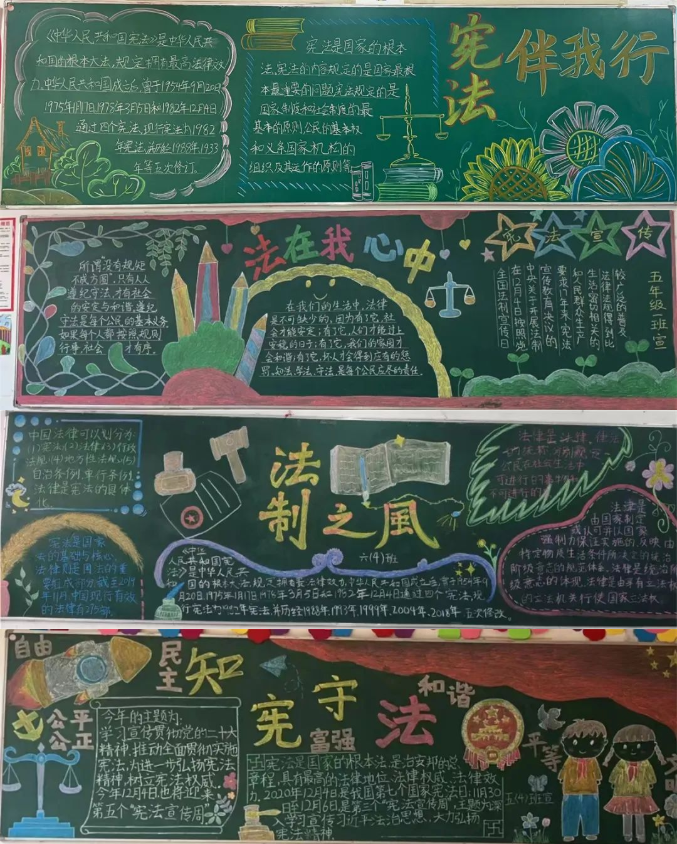 《中华人民共和国宪法》是中华人民共
和国的根本大法,规定拥有最高法律效
力.中华人民共和国成立后,曾于1954年9月20日
1975年1月17日1978年3月5日和1982年12月4日
通过四个宪法,现行宪法为1982
年宪法,并历经1988年,1993
年等五次修订.
宪法是国家的根本
法,宪法的内容规定的是国家最根
本最重要的问题,宪法规定的是
国家制度和社会制度的最
基本的原则,公民的基本权
和义务国家机构的
组织及其运作的原则等
宪法
伴我行
所谓"没有规矩
不成方圆",只有人人
遵纪守法,才有社会
的安定与和谐,遵纪
守法是每个公民的基本义务
如果每个人都按照规则
行事,社会才有序。
法在我心中
在我们的生活中,法律
是不可缺少的,因为有了它,社
会才能安定;有了它,人们才能过上
安稳的日子;有了它,我们的家园才
会和谐;有了它,坏人才会得到应有的惩
罚,知法、学法、守法,是每个公民应尽的责任.
宪法宣传
较广泛的普及
法律法规得到比
生活密切相关的
和人民群众生产
要求,八年来宪法
宣传教育决议的
中央关于开展法制
在12月4日按照党
全国法制宣传日
五年级一班宣
中国法律可以划分为
(1)宪法(2)法律(3)行政
法规(4)地方性法规(5)
自治条例,单行条例
法律是宪法的具体
化
宪法是国家
法的基础与核心,
法律则是国法的重
要组成部分截至2019
年8月,中国现行有效
的法律有275部
法制之風
六(4)班
《中华
人民共和国宪
法》是中华人民共
和国的根本大法,规定拥有最高法律效力.中华人民共和国成立后,曾于1954年9
月20日,1975年1月17日,1978年3月5日和1982年12月4日通过四个宪法,现
行宪法为1982年宪法,并历经1988年,1993年,1999年,2004年,2018年五次修改。
法律是
由国家制定
或认可并以国家
强制力保证实施的,反映由
特定物质生活条件所决定的统治
阶级意志的规范体系,法律是统治阶
级意志的体现,法律是由享有立法权
的立法机关行使国家立法权
自由
民主
公平
公正
知宪守法
富强
和谐
平等
今年的主题为:
学习宣传贯彻党的二十大
精神,推动全面贯彻实施
宪法,为进一步弘扬宪法
精神,树立宪法权威,
今年12月4日也将迎来
第五个"宪法宣传周"
宪法是国家的根本法,是治安邦的总
章程,具有最高的法律地位、法律权威、法律效
力,2020年12月4日是我国第七个国家宪法日;11月30
日至12月6日是第三个"宪法宣传周",主题为"深
入学习宣传习近平法治思想、大力弘扬
宪法精神"
五(4)班宣